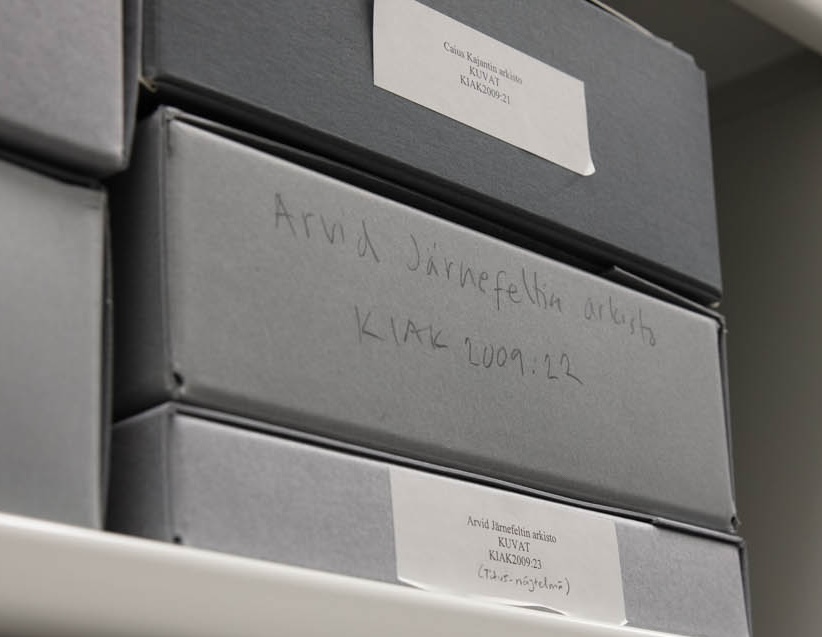 Caius Kajantin arkisto
KUVAT
KIAK2009:21
Arvid Järnefeltin arkisto
KIAK 2009:22
Arvid Järnefeltin arkisto
KUVAT
KIAK2009:23
(Titus-näytelmä)